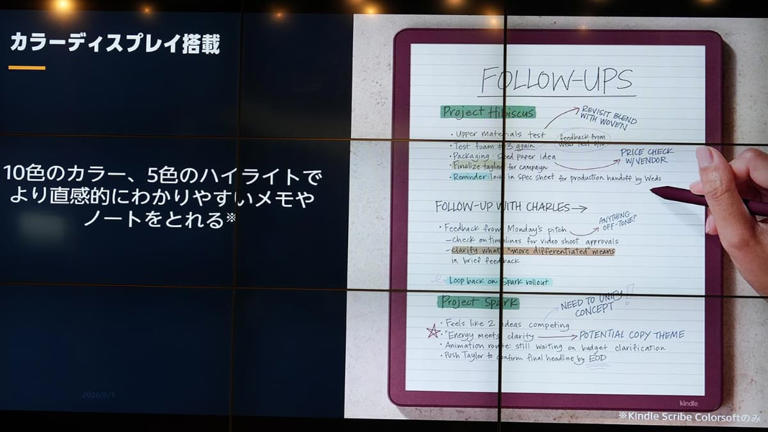 カラーディスプレイ搭載
10色のカラー、5色のハイライトで
より直感的にわかりやすいメモや
ノートをとれる※
FOLLOW-UPS
Project Hibiscus
REVISIT BLEND
WITH WOVEN
• Upper materials test
feedback from
• Test foam #3 again
• Packaging: seed paper idea
PRICE CHECK
W/VENDOR
• Finalize tagline for campaign
• Reminder: in spec sheet for production handoff by Weds
FOLLOW-UP WITH CHARLES→
ANYTHING
OFF-TONE?
• Feedback from Monday's pitch
– Check on timelines for video shoot approvals
– Clarify what "more differentiated" means
in brief feedback
Loop back on Spark rollout
Project Spark
NEED TO UNIFY
CONCEPT
• Feels like 2 ideas competing
• "Energy meets clarity → POTENTIAL COPY THEME
• Animation route: still waiting on budget clarification
• Push Taylor to confirm final headline by EOD
kindle
※Kindle Scribe Colorsoftのみ